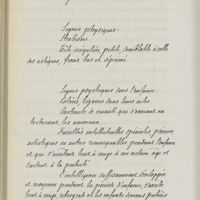 Signes physiques.
Strabisme
Tête irrégulière, petite, semblable à celle
des
front bas et déprimé
Signes psychiques dans l'enfance.
Colères, bizarres dans leurs actes
Instincts de cruauté qui s'exercent en
torturant les animaux.
Facultés intellectuelles spéciales, poésie,
artistiques ou autres remarquables pendant l'enfance
et qui s'arrêtent tout à coup à un certain âge et
surtout à la puberté.
Intelligence suffisamment développée
et moyenne pendant la période d'enfance, s'arrête
tout à coup rétrograde et les enfants